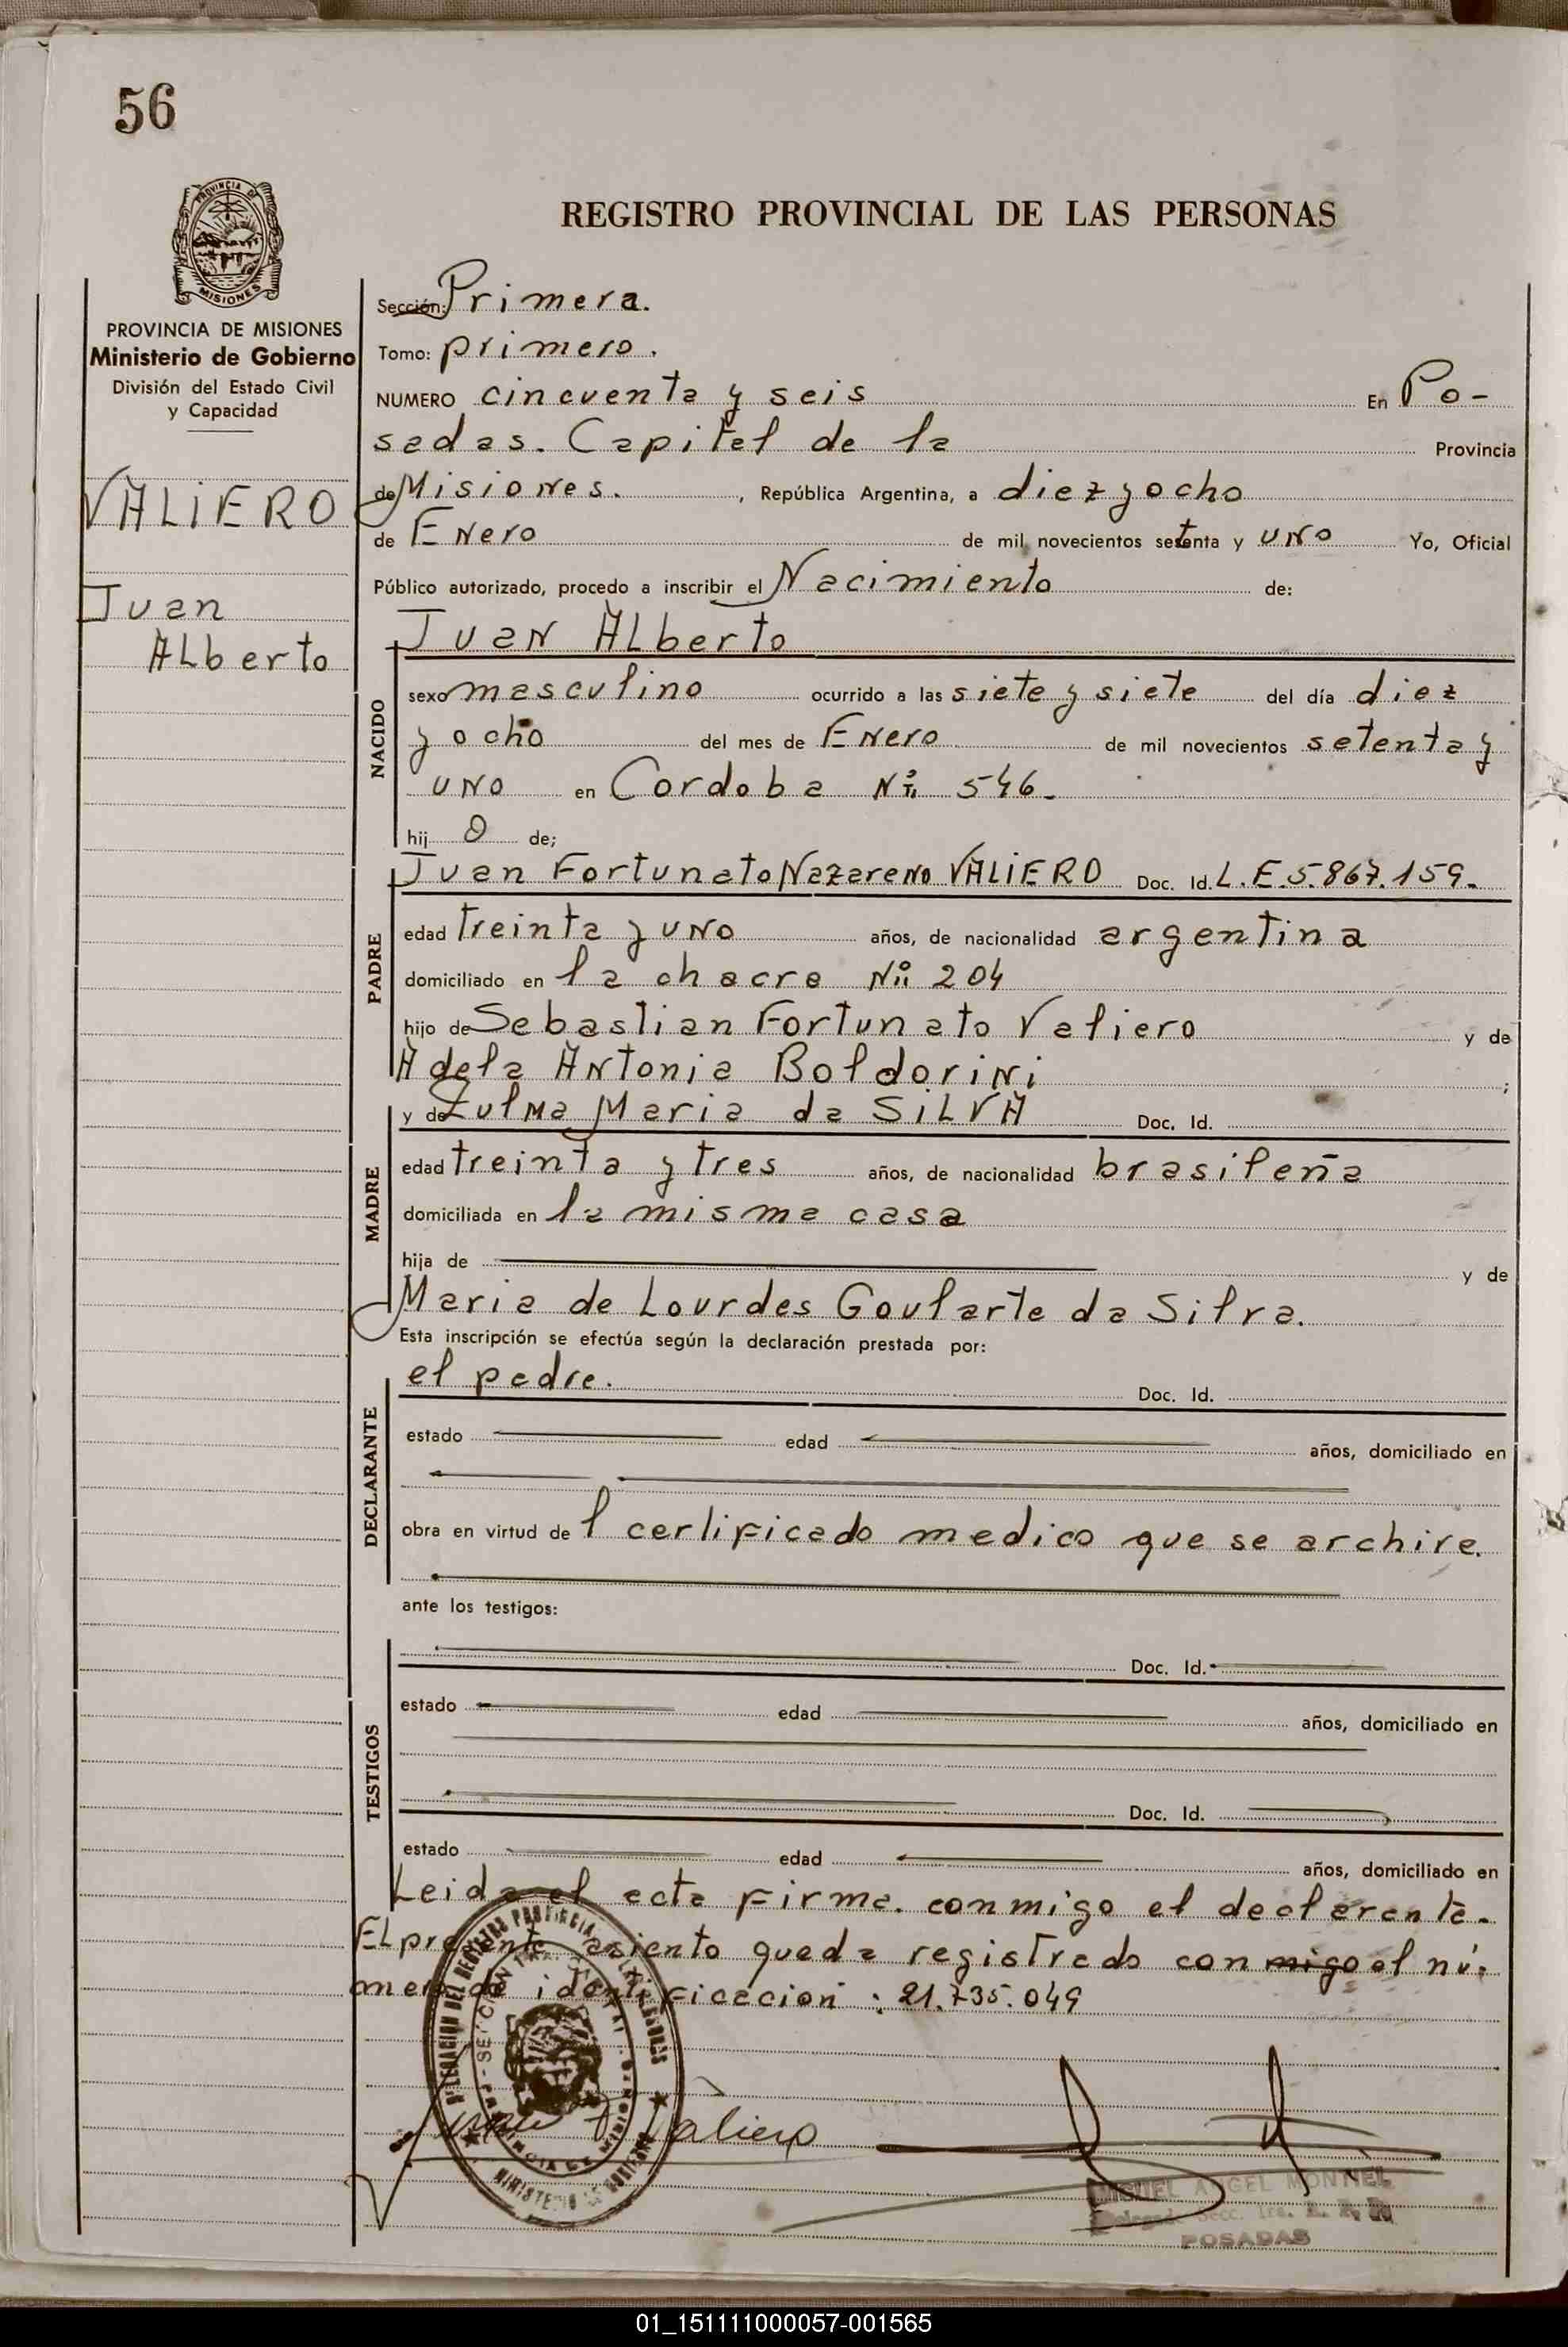 56
REGISTRO PROVINCIAL DE LAS PERSONAS
PROVINCIA DE
MISIONES
PROVINCIA DE MISIONES
Ministerio de Gobierno
División del Estado Civil
y Capacidad
VALIERO
Juan
Alberto
Sección: Primera.
Tomo: primero.
NUMERO cincuenta y seis En Po-
sadas. Capital de la Provincia
de Misiones. , República Argentina, a diez y ocho
de Enero de mil novecientos setenta y uno Yo, Oficial
Público autorizado, procedo a inscribir el Nacimiento de:
Juan Alberto
NACIDO
sexo masculino ocurrido a las siete y siete del día diez
y ocho del mes de Enero de mil novecientos setenta y
uno en Cordoba Nº 546.
hij o de;
Juan Fortunato Nazareno VALIERO Doc. Id. L.E.5.867.159.
PADRE
edad treinta y uno años, de nacionalidad argentina
domiciliado en la chacra Nº 204
hijo de Sebastian Fortunato Valiero y de
Adela Antonia Boldorini ;
y de Zulma Maria da SILVA Doc. Id.
MADRE
edad treinta y tres años, de nacionalidad brasileña
domiciliada en la misma casa
hija de y de
Maria de Lourdes Goularte da Silva.
Esta inscripción se efectúa según la declaración prestada por:
el padre. Doc. Id.
DECLARANTE
estado edad años, domiciliado en
obra en virtud de l certificado medico que se archiva.
ante los testigos:
Doc. Id.
TESTIGOS
estado edad años, domiciliado en
Doc. Id.
estado edad años, domiciliado en
Leida el acta firma. conmigo el declarante.
El presente asiento queda registrado con migo el nú-
mero de identificacion : 21.735.049
Juan F Valiero
MIGUEL ANGEL MONTIEL
Delegad. Secc. 1ra.
POSADAS
01_151111000057-001565